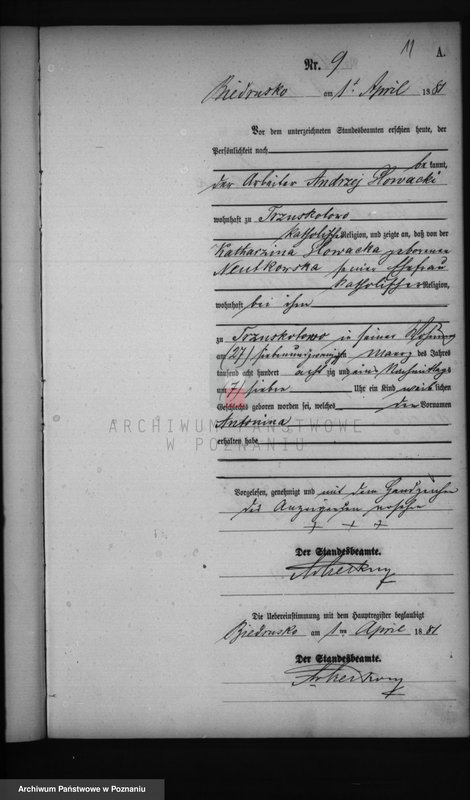 11
A.
Nr. 9
Biedrusko am 1t April 1881
Vor dem unterzeichneten Standesbeamten erschien heute, der
Persönlichkeit nach
be kannt,
der Arbeiter Andrzej Słowacki
wohnhaft zu Trzuskotowo
katholischer Religion, und zeigte an, daß von der
Katharzina Słowacka geborenen
seiner Ehefrau
katholischer Religion,
wohnhaft bei ihm
zu Trzuskotowo in seiner Wohnung
am (27) siebenundzwanzigsten Maerz des Jahres
tausend acht hundert achtzig und eins Nachmittags
um (7) sieben Uhr ein Kind weiblichen
Geschlechts geboren worden sei, welches den Vornamen
Antonina
erhalten habe
ARCHIWUM PAŃSTWOWE
W POZNANIU
Vorgelesen, genehmigt und mit dem Handzeichen
des Anzeigenden versehen
+ + +
Der Standesbeamte.
Die Uebereinstimmung mit dem Hauptregister beglaubigt
Biedrusko am 1ten April 1881
Der Standesbeamte.
Archiwum Państwowe w Poznaniu